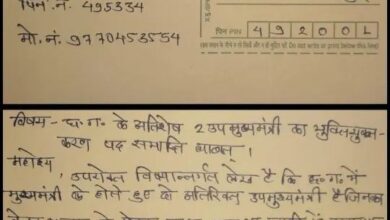 पिन.नं. 495334
मो.नं. 9770453534
पिन PIN 49200L
विषय - छ.ग. के अतिशेष 2 उपमुख्यमंत्री का युक्तियुक्त-
करण पद समाप्ति बाबत् ।
महोदय,
उपरोक्त विषयान्तर्गत लेख है कि छ.ग. में
मुख्यमंत्री के होते हुए दो अतिरिक्त उपमुख्यमंत्री है जिनका